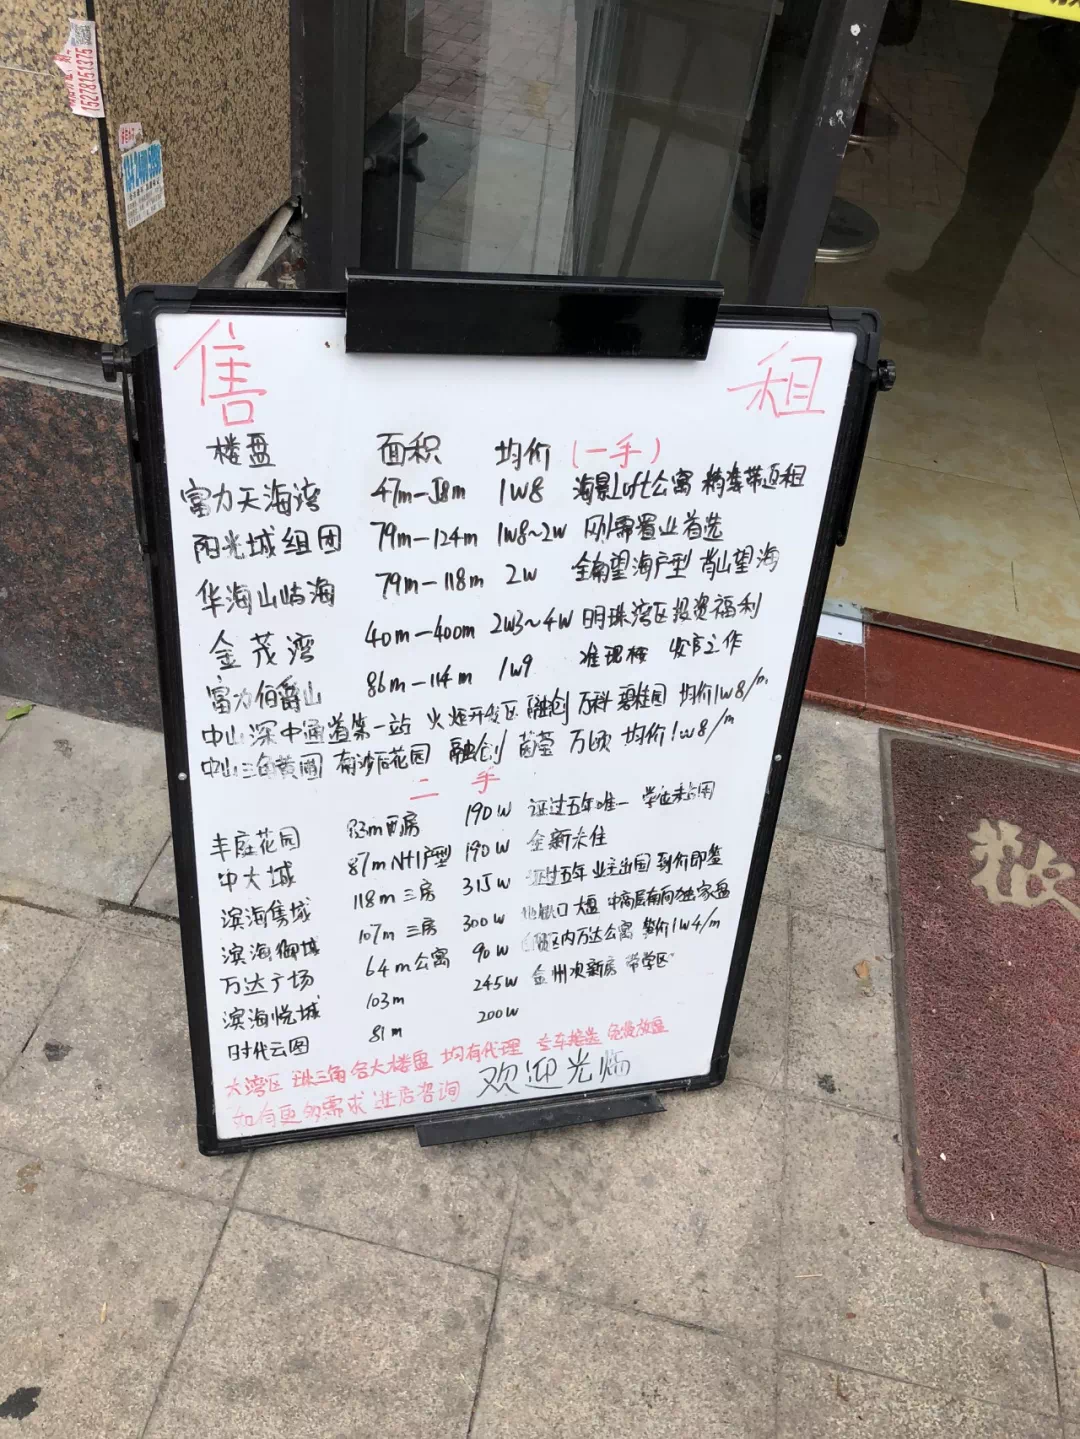 15278151375
售 租
楼盘 面积 均价 (一手)
富力天海湾 47m—58m 1W8 海景Loft公寓 精装带返租
阳光城组团 79m—124m 1W8~2W 刚需置业首选
华海山屿海 79m—118m 2W 全南望海户型 背山望海
金茂湾 40m—400m 2W3~4W 明珠湾区投资福利
富力伯爵山 86m—114m 1W9 准现楼
中山 深中通道第一站 火炬开发区 融创 万科 碧桂园 均价1W8/m
中山三角黄圃 有沙后花园 融创 万顷 均价1W8/m
二手
丰庭花园 83m两房 190W 证过五年唯一 学位未占用
中大城 87m N+1户型 190W 全新未住
滨海隽城 118m 三房 315W 证过五年 业主出国 到价即签
滨海御城 107m 三房 300W 地铁口 大盘 中高层南向独家盘
万达广场 64m公寓 90W 区内万达公寓 单价1W4/m
滨海悦城 103m 245W 金州次新房 带学区
时代云图 81m 200W
大湾区 珠三角各大楼盘 均有代理 专车接送 免费放盘
如有更多需求 进店咨询 欢迎光临
欢